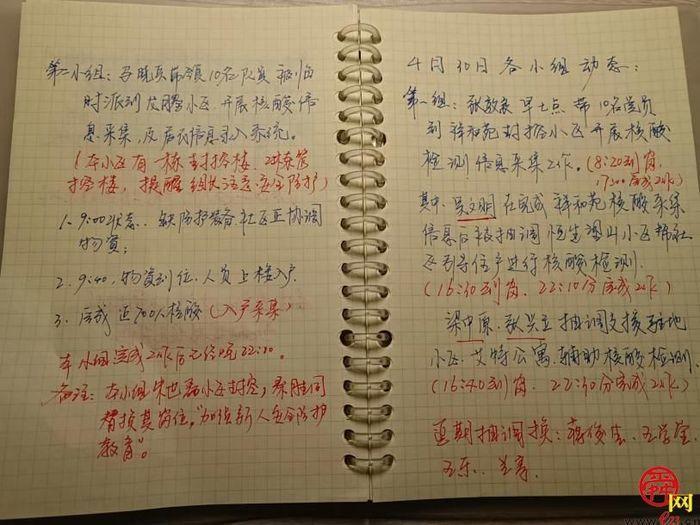 第二小组：带领10名队员被临
时派到 小区开展核酸信
息采集，及 信息录入系统。
（本小区有一栋封控楼，2栋管
控楼，提醒组员注意安全防护）
1. 9:00状态：缺防护装备 社区正协调
物资；
2. 9:40，物资到位，人员上楼入户
3. 完成近700人核酸（入户采集）
本小组完成工作后已经晚22:10。
备注：本小组 小区封控，
替换其岗位，“加强新人安全防护
教育”。
4月30日各小组动态：
第一组：张 早七点 带10名党员
到祥和苑封控小区开展核酸
检测信息采集工作。（8:20到岗，
17:00完成工作）
其中：吴文明在完成祥和苑核酸采集
信息后被抽调 小区 社
区 住户进行核酸检测.
（16:30到岗，22:10分完成工作）
梁中原、张 抽调支援 地
小区、艾特公寓，辅助核酸检测
（16:40到岗，22:30分完成工作）
近期抽调换：
舜
网